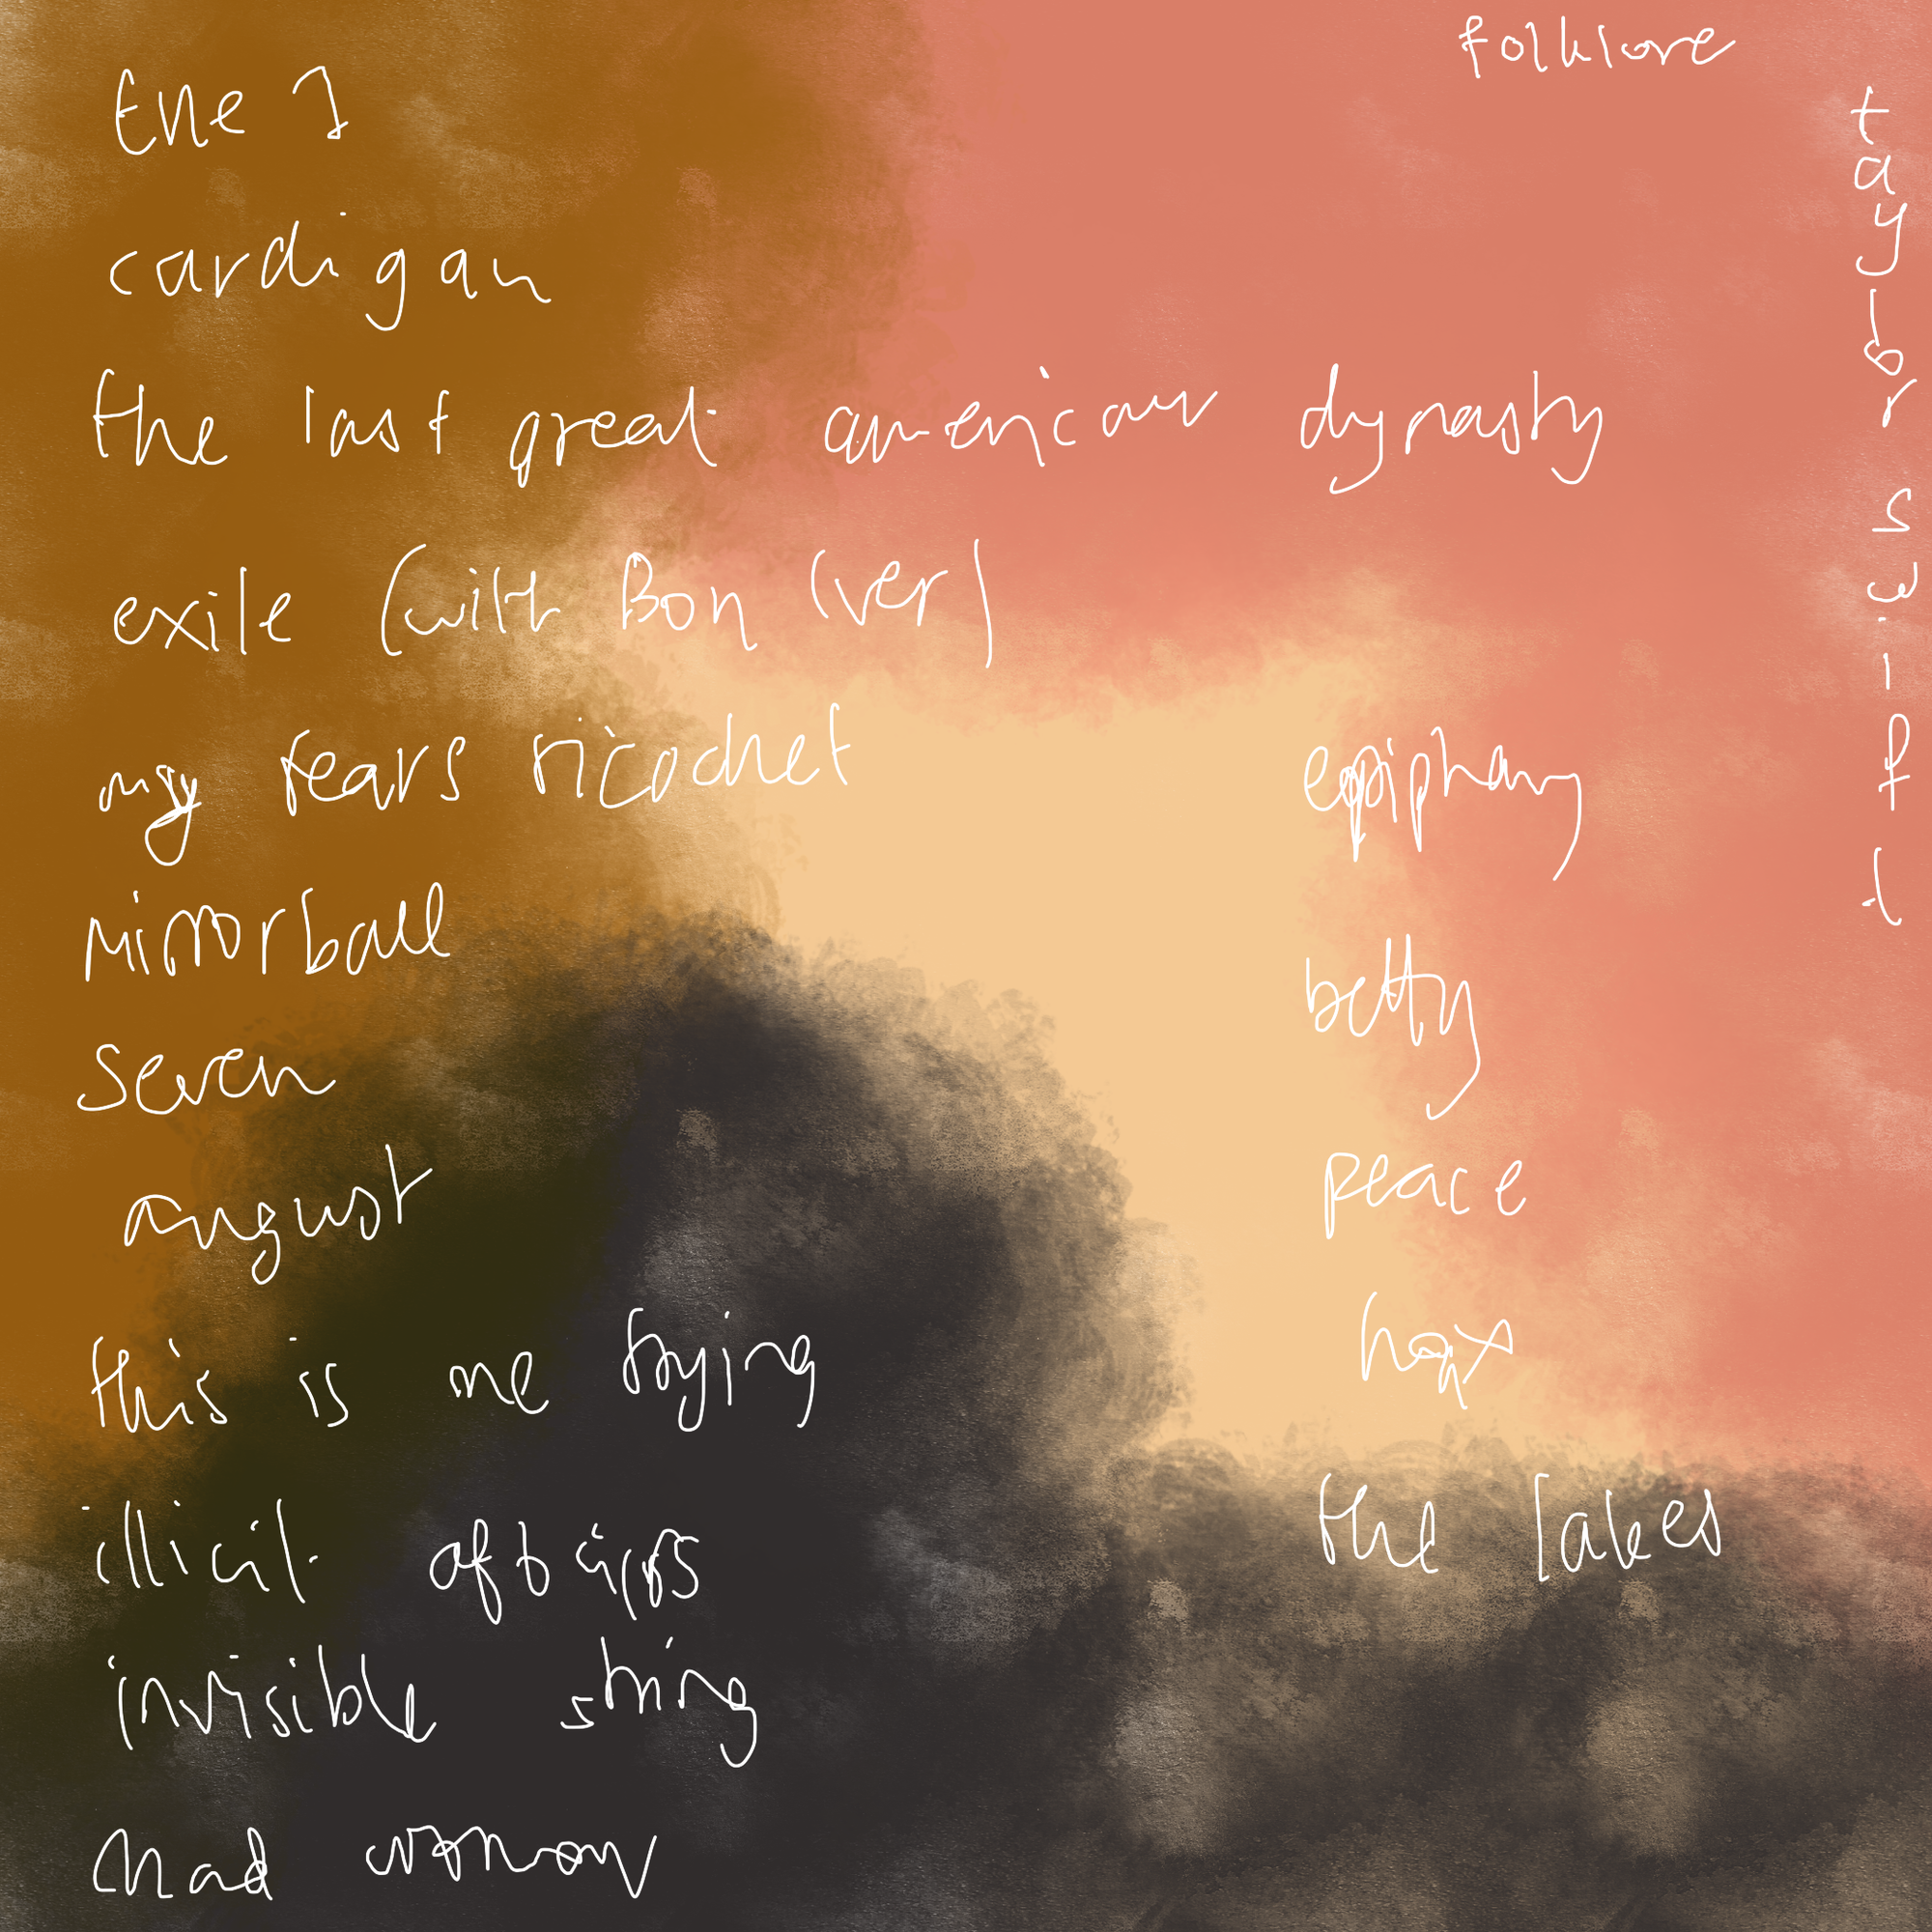 folklore
taylor swift
the 1
cardigan
the last great american dynasty
exile (with Bon Iver)
my tears ricochet
mirrorball
seven
august
this is me trying
illicit affairs
invisible string
mad woman
epiphany
betty
peace
hoax
the lakes